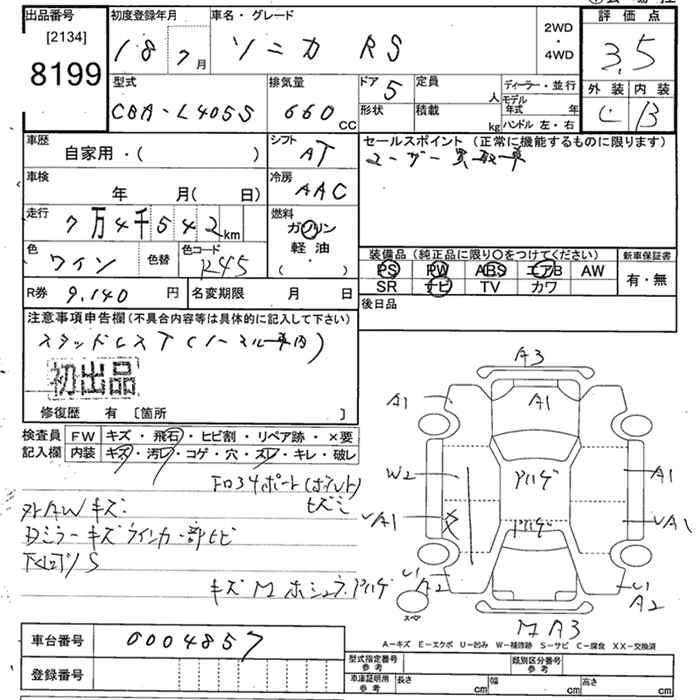 出品番号
[2134]
8199
初度登録年月
18 7月
車名・グレード
ソニカ RS
2WD
・
4WD
評価点
3.5
外装 内装
C B
型式
CBA-L405S
排気量
660 CC
ドア 5
形状
定員 人
積載 kg
ディーラー・並行
モデル年式 年
ハンドル 左・右
車歴
自家用・( )
シフト
AT
セールスポイント (正常に機能するものに限ります)
ユーザー買取車
車検
年 月( 日)
冷房
AAC
走行
7万4千542km
燃料
ガソリン
軽油
( ・ )
色
ワイン
色替
色コード
R45
装備品 (純正品に限り〇をつけてください)
PS PW ABS エアB AW
SR ナビ TV カワ
新車保証書
有・無
R券 9,140 円
名変期限 月 日
後日品
注意事項申告欄(不具合内容等は具体的に記入して下さい)
スタッドレスT(ノーマル車内)
初出品
修復歴 有 [箇所 ]
検査員記入欄
FW キズ・飛石・ヒビ割・リペア跡・×要
内装 キズ・汚レ・コゲ・穴・スレ・キレ・破レ
外AWキズ
Dミラーキズウインカー部ヒビ
下回りS
A3
A1
A1
W2
A1
A1
A1
A2
A2
スペア
M A3
車台番号 0004857
登録番号
A-キズ E-エクボ U-凹み W-補修跡 S-サビ C-腐食 XX-交換済
型式指定番号 参考
類別区分番号 参考
車庫証明用 参考
長さ cm
幅 cm
高さ cm